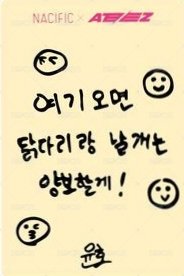 NACIFIC × ATEEZ
여기 오면
닭다리랑 날개는
양보할게!
윤호